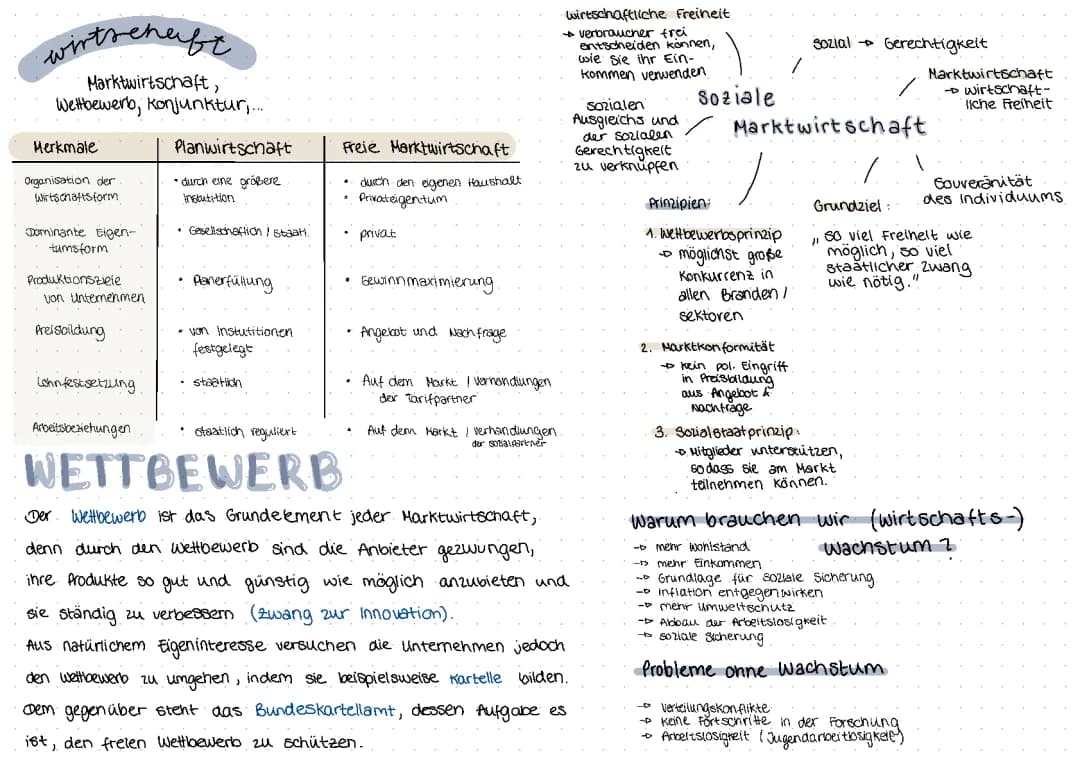 wirtschaft
Marktwirtschaft,
Wettbewerb, Konjunktur,...
Merkmale | Planwirtschaft | Freie Marktwirtschaft
Organisation der Wirtschaftsform | • durch eine größere Instutition | • durch den eigenen Haushalt • Privateigentum
Dominante Eigen-tumsform | • Gesellschaftlich / Staatl. | • privat
Produktionsziele von Unternehmen | • Planerfüllung | • Gewinnmaximierung
Preisbildung | • von Instutitionen festgelegt | • Angebot und Nachfrage
Lohnfestsetzung | • staatlich | • Auf dem Markt / Verhandlungen der Tarifpartner
Arbeitsbeziehungen | • staatlich reguliert | • Auf dem Markt / Verhandlungen der Sozialpartner
WETTBEWERB
Der Wettbewerb ist das Grundelement jeder Marktwirtschaft,
denn durch den Wettbewerb sind die Anbieter gezwungen,
ihre Produkte so gut und günstig wie möglich anzubieten und
sie ständig zu verbessern (Zwang zur Innovation).
Aus natürlichem Eigeninteresse versuchen die Unternehmen jedoch
den Wettbewerb zu umgehen, indem sie beispielsweise Kartelle bilden.
Dem gegenüber steht das Bundeskartellamt, dessen Aufgabe es
ist, den freien Wettbewerb zu schützen.
wirtschaftliche Freiheit
→ Verbraucher frei
entscheiden können,
wie sie ihr Ein-
kommen verwenden
sozial → Gerechtigkeit
Marktwirtschaft
→ wirtschaft-
liche Freiheit
Soziale
Marktwirtschaft
sozialen
Ausgleichs und
der sozialen
Gerechtigkeit
zu verknüpfen
Souveränität
des Individuums
Grundziel:
„so viel Freiheit wie
möglich, so viel
staatlicher Zwang
wie nötig."
Prinzipien:
1. Wettbewerbsprinzip
→ möglichst große
Konkurrenz in
allen Branden /
sektoren
2. Marktkonformität
→ kein pol. Eingriff
in Preisbildung
aus Angebot &
Nachfrage
3. Sozialstaatprinzip:
→ Mitglieder unterstützen,
sodass sie am Markt
teilnehmen können.
Warum brauchen wir (wirtschafts-)
wachstum?
→ mehr Wohlstand
→ mehr Einkommen
→ Grundlage für soziale Sicherung
→ Inflation entgegenwirken
→ mehr Umweltschutz
→ Abbau der Arbeitslosigkeit
→ soziale Sicherung
Probleme ohne Wachstum
→ Verteilungskonflikte
→ Keine Fortschritte in der Forschung
→ Arbeitslosigkeit (Jugendarbeitlosigkeit)